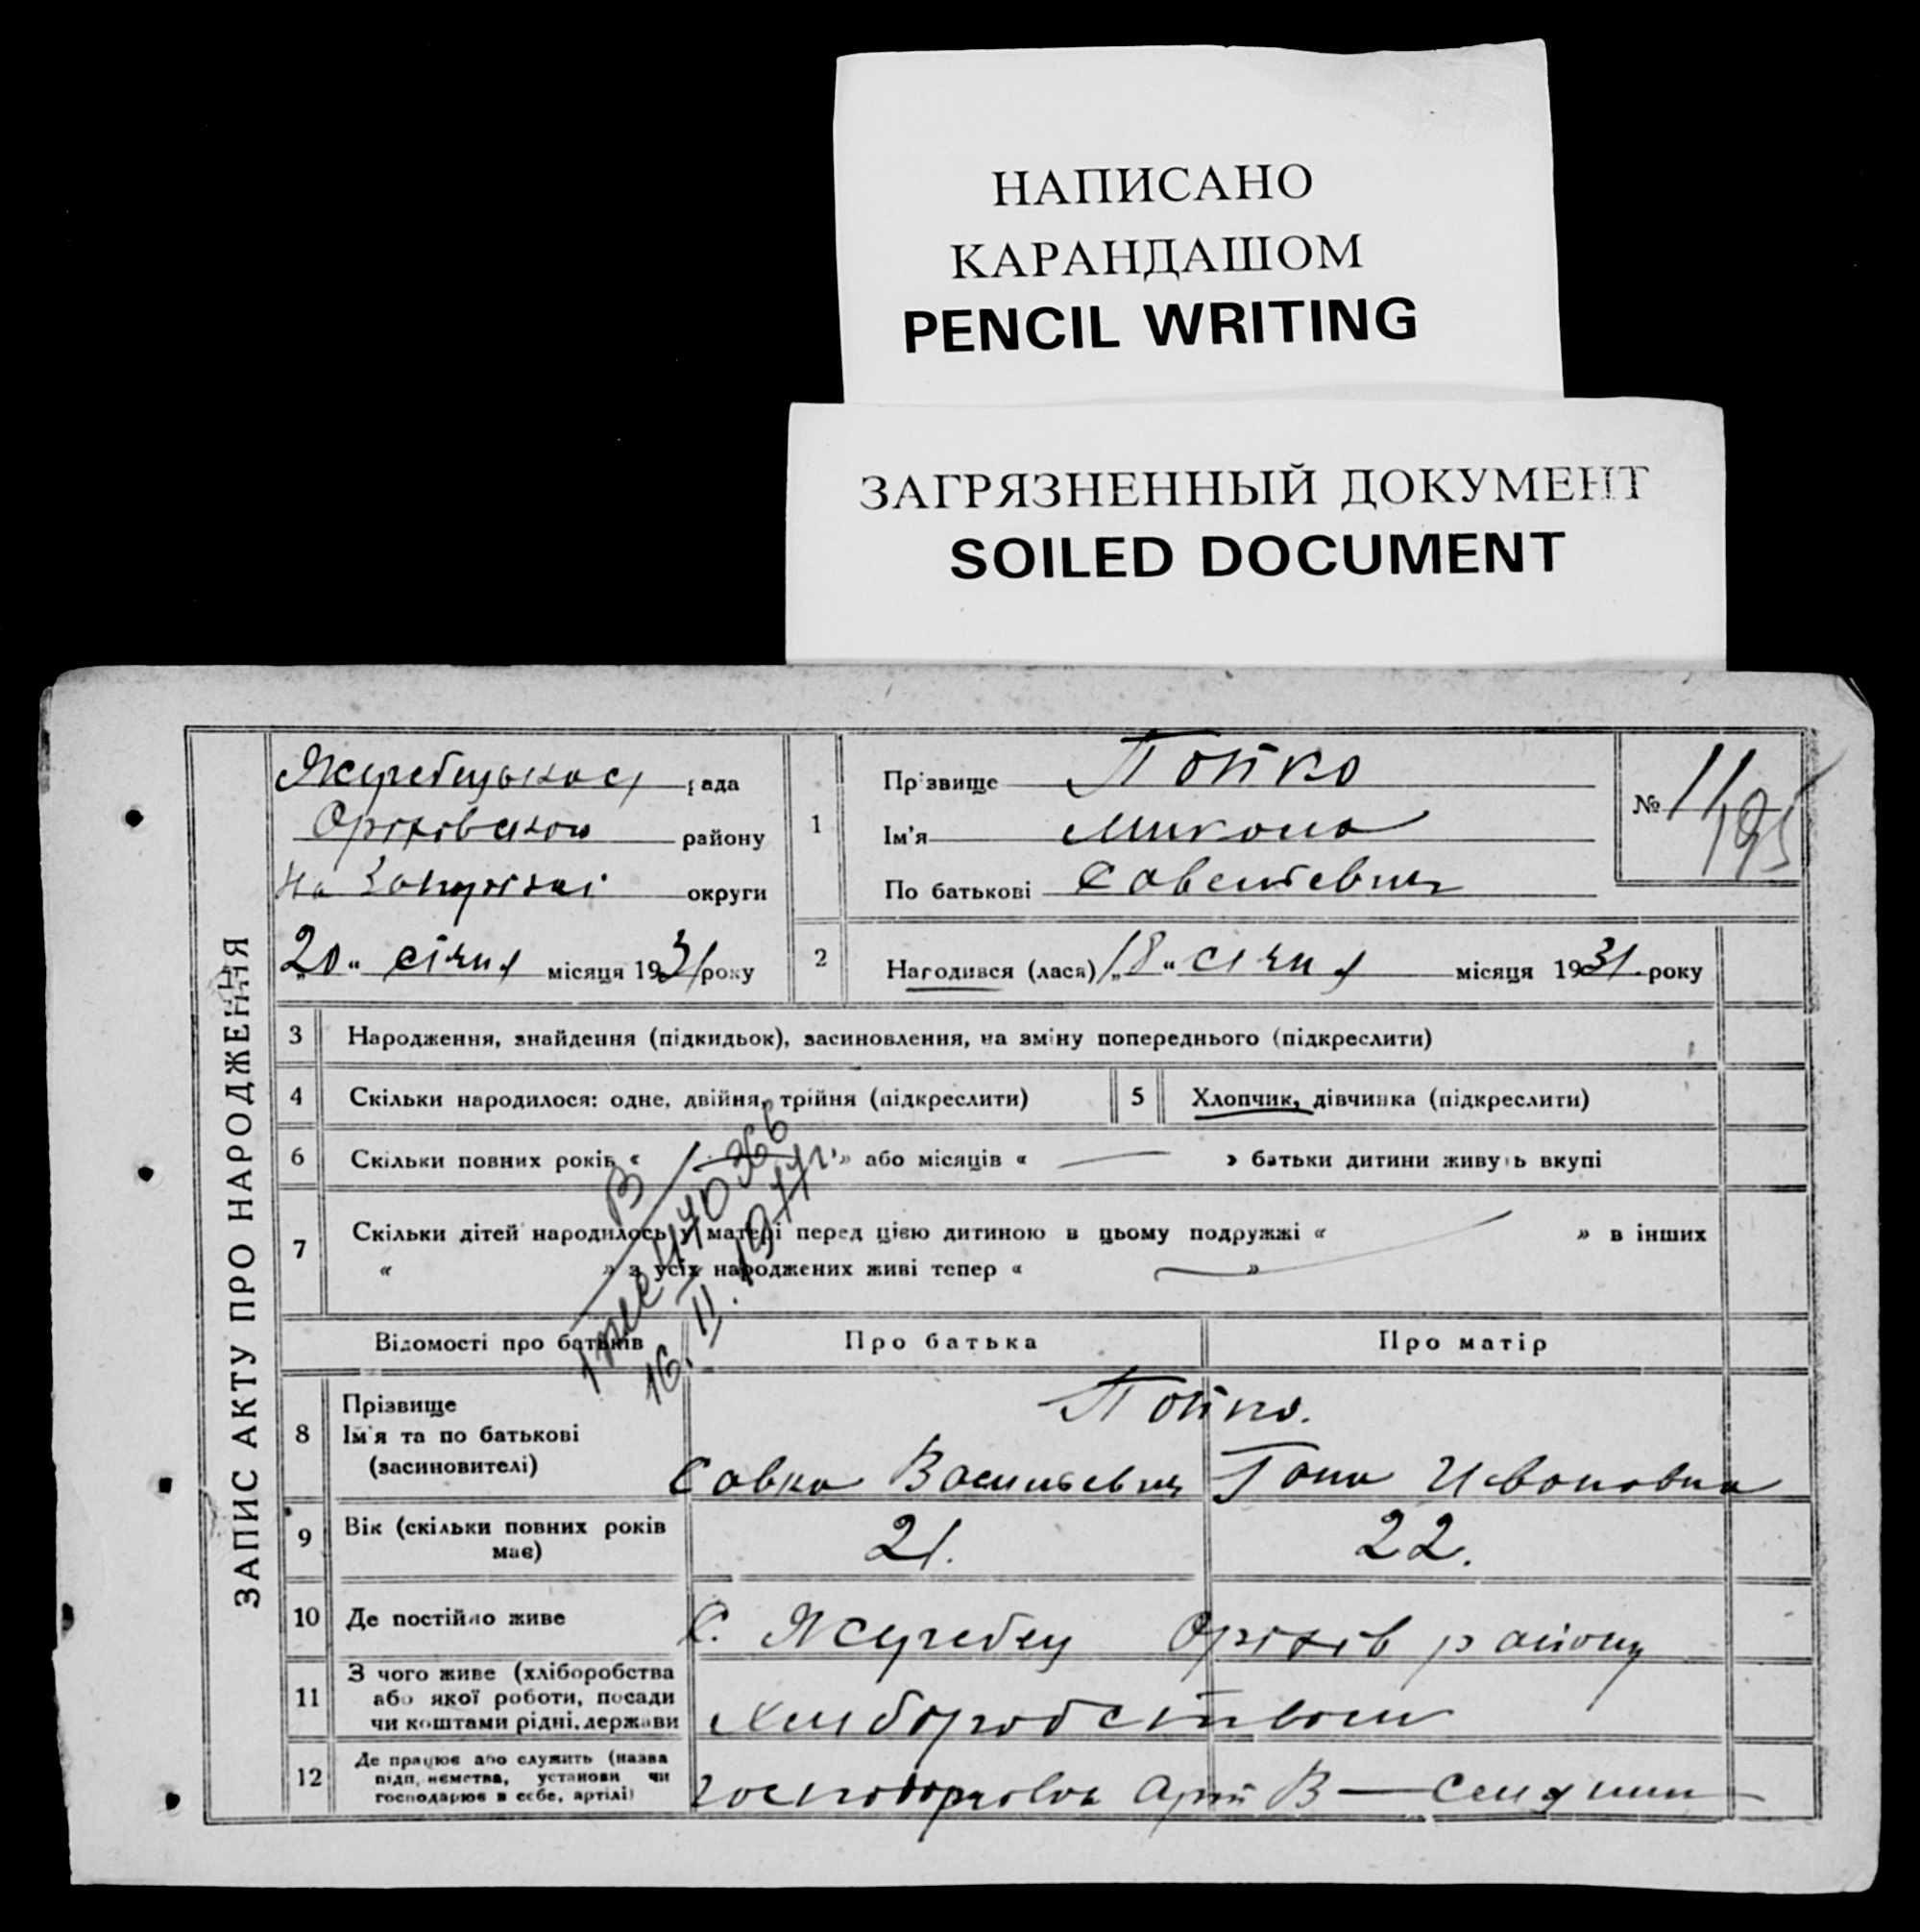 НАПИСАНО
КАРАНДАШОМ
PENCIL WRITING
ЗАГРЯЗНЕННЫЙ ДОКУМЕНТ
SOILED DOCUMENT
ЗАПИС АКТУ ПРО НАРОДЖЕННЯ
рада
Оріхівського району
на Запоріжжі округи
„20“ січня місяця 1931 року
1
Прізвище
Ім'я Микола
По батькові Савелієвич
№ 11/195
2 Народився (лася) „18“ січня місяця 1931 року
3 Народження, знайдення (підкидьок), засиновлення, на зміну попереднього (підкреслити)
4 Скільки народилося: одне, двійня, трійня (підкреслити)
5 Хлопчик, дівчинка (підкреслити)
6 Скільки повних років « » або місяців « — » батьки дитини живуть вкупі
7 Скільки дітей народилось у матері перед цією дитиною в цьому подружжі « » в інших
« » з усіх народжених живі тепер « — »
16. II. 1977г.
Відомості про батьків
Про батька
Про матір
8 Прізвище
Ім'я та по батькові
(засиновителі)
Савка Васильевич
Ивановна
9 Вік (скільки повних років має)
21.
22.
10 Де постійно живе
С. Жеребец Оріхів району
11 З чого живе (хліборобства
або якої роботи, посади
чи коштами рідні, держави
хлиборобством
12 Де працює або служить (назва
підприємства, установи чи
господарює в себе, артілі)
Арт В —